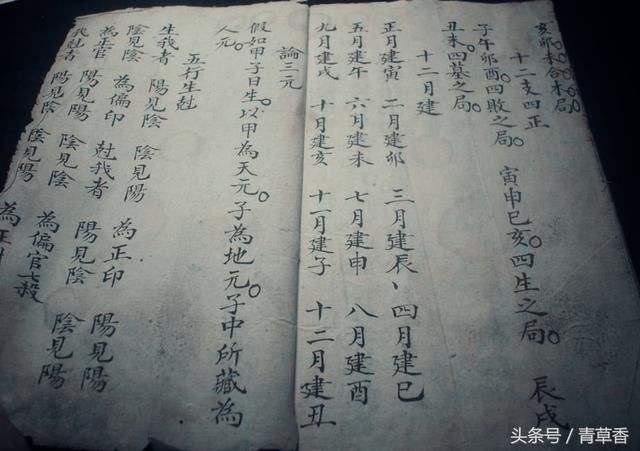 亥卯未合木局
十二支四正
子午卯酉。四敗之局。 寅申巳亥。四生之局。 辰戌
丑未。四墓之局。
十二月建
正月建寅 二月建卯 三月建辰、四月建巳
五月建午 六月建未 七月建申 八月建酉
九月建戌 十月建亥 十一月建子 十二月建丑
論三元
假如甲子日生。以甲為天元。子為地元。子中所藏為
人元。
五行生尅
生我者 陽見陰 陰見陽 為正印 陽見陽
陰見陰 為偏印 尅我者 陽見陰 陰見陽
為正官 陽見陽 陰見陰 為偏官七殺
我尅者 陽見陰 陰見陽 為正
头条号/青草香